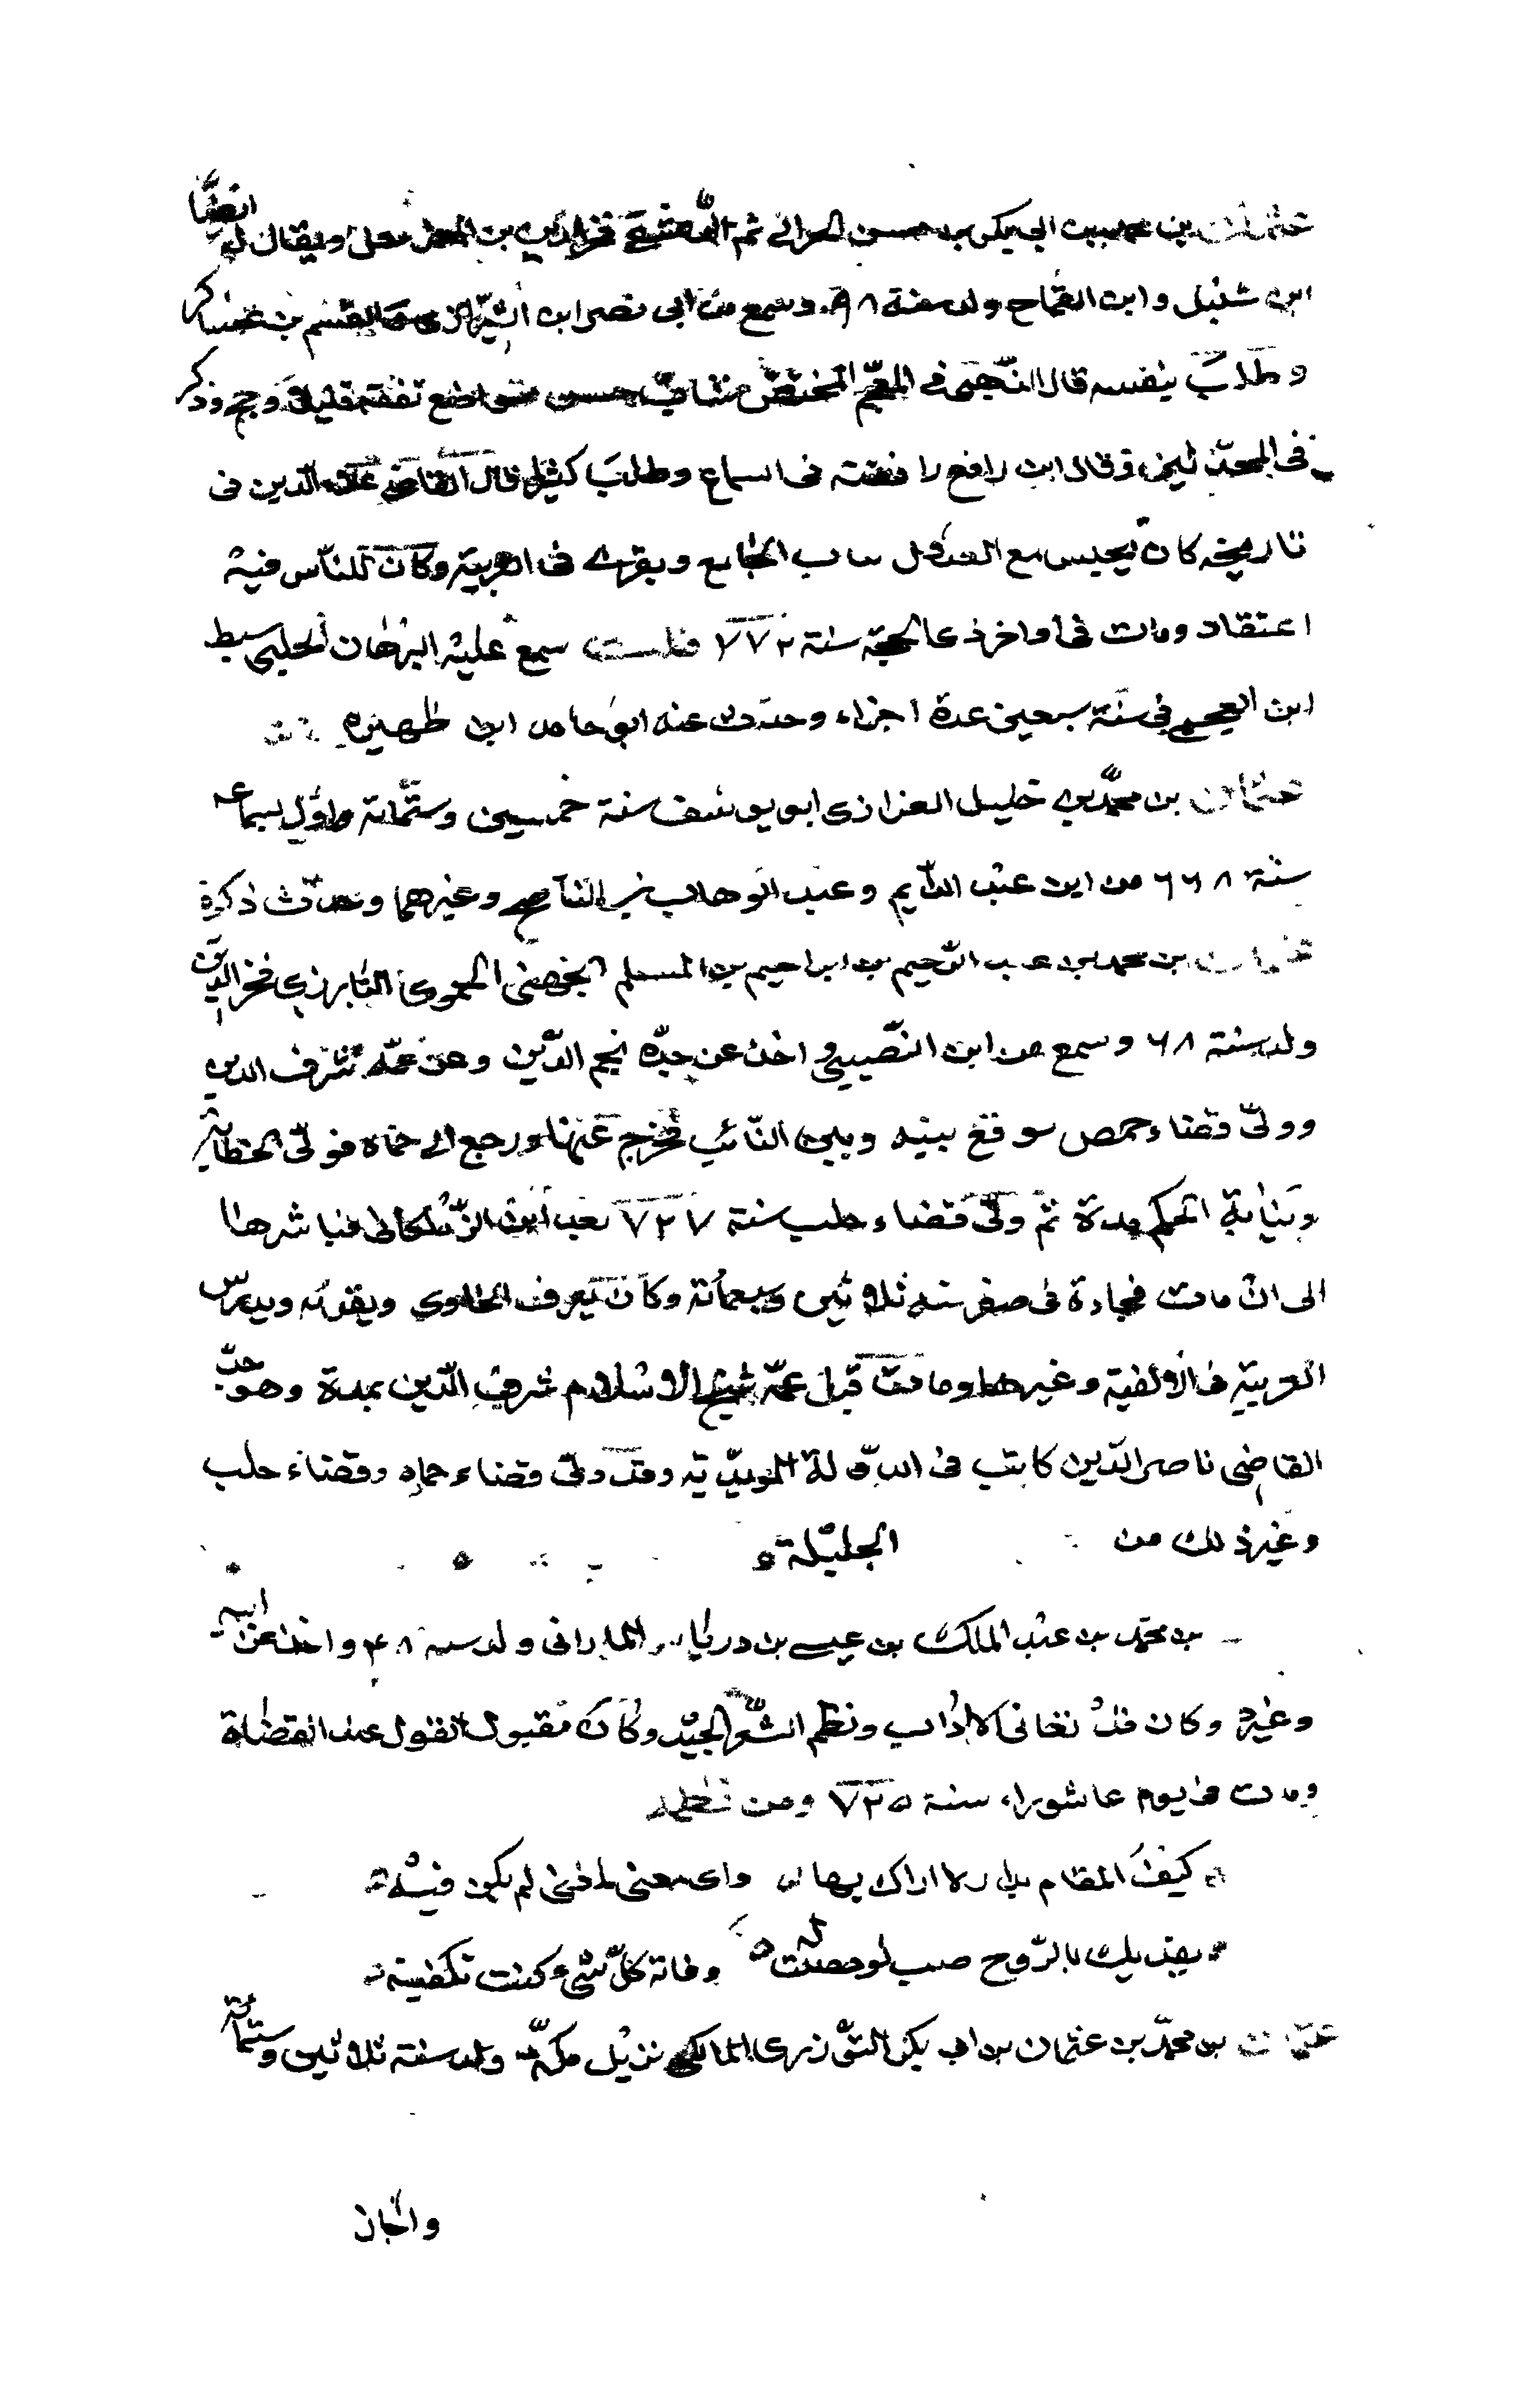 عثمان بن محمد بن ابى بكر بن حسن الحرانى ثم الدمشقى فخر الدين بن المغربل ويقال له ايضا
ابن شنبل وابن القماح ولد سنة ٦٩٨ وسمع من ابى نصر ابن الشيرازى والقسم بن عساكر
وطلب بنفسه قال الذهبى فى المعجم المختص شاب حسن متواضع تفقه قليلا وحج وذكر
فى المحدثين وقال ابن رافع رافقته فى السماع وطلب كثيرا قال القاضى علاء الدين فى
تاريخه كان يجلس مع العدول بباب الجامع ويقرى فى العربية وكان للناس فيه
اعتقاد ومات فى اواخر ذى الحجة سنة ٧٧٢ قلت سمع عليه البرهان الحلبى سبط
ابن العجمى فى سنة سبعين عدة اجزاء وحدث عنه ابو حامد ابن ظهيره
عثمان بن محمد بن خليل العزازى ابو يوسف سنة خمسين وستمائة واول سماعه
سنة ٦٦٨ من ابن عبد الدايم وعبد الوهاب بن الناصح وغيرهما وحدث ذكره
عثمان بن محمد بن عبد الرحيم بن ابراهيم بن المسلم الجهنى الحموى البارزى فخر الدين
ولد سنة ٦٨ وسمع من ابن النصيبى واخذ عن جده نجم الدين وعن عمه شرف الدين
وولى قضاء حمص فوقع بينه وبين النائب فخرج عنها ورجع الى حماه فولى الخطابة
ونيابة الحكم مدة ثم ولى قضاء حلب سنة ٧٢٧ بعد ابن الزملكانى فباشرها
الى ان مات فجاءة فى صفر سنة ثلاثين وسبعمائة وكان يعرف الحاوى ويقرئه ويدرس
العربية فى الالفية وغيرها ومات قبل عمه شيخ الاسلام شرف الدين بمدة وهو جد
القاضى ناصر الدين كاتب فى الدولة المويدية وقد ولى قضاء حماه وقضاء حلب
وغير ذلك من الجليلة
بن محمد بن عبد الملك بن عيسى بن درباس المارانى ولد سنة ٤٨ واخذ عن ابيه
وغيره وكان قد تعانى الاداب ونظم الشعر الجيد وكان مقبول القول عند القضاة
ومات فى يوم عاشوراء سنة ٧٢٥ ومن نظمه
كيف المقام بدار لا اراك بها واى معنى لمغنى لم تكن فيه
يفديك بالروح صب لو حصلت له وفاته كل شىء كنت تكفيه
عثمان بن محمد بن عثمان بن ابى بكر التوزرى المالكى نزيل مكة ولد سنة ثلاثين وستمائة
واجاز